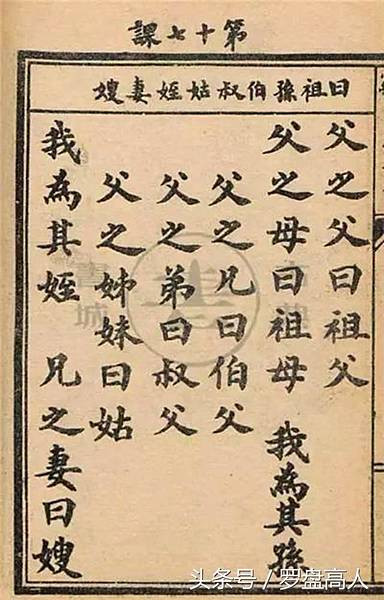 第十七課
曰祖孫伯叔姑姪妻嫂
父之父曰祖父
父之母曰祖母 我為其孫
父之兄曰伯父
父之弟曰叔父
父之姊妹曰姑
我為其姪 兄之妻曰嫂
書城
头条号 / 罗盘高人